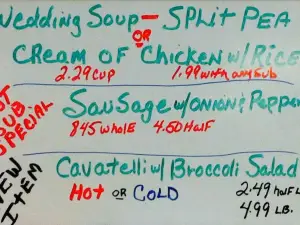 Wedding Soup - Split Pea
OR
Cream of Chicken w/ Rice
2.29 CUP 1.99 with any sub
HOT SUB SPECIAL
Sausage w/ onion & Pepper
845 whole 4.50 Half
NEW ITEM
Cavatelli w/ Broccoli Salad
Hot OR COLD
2.49 half L
4.99 LB.